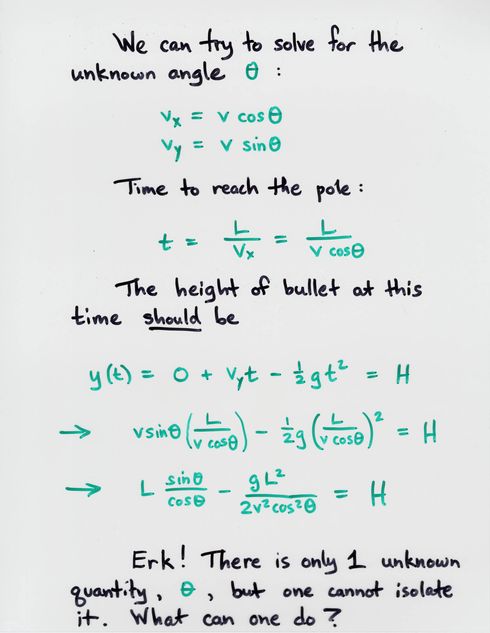 We can try to solve for the
unknown angle θ :
vₓ = v cosθ
v_y = v sinθ
Time to reach the pole :
t = L/vₓ = L/(v cosθ)
The height of bullet at this
time should be
y(t) = 0 + v_y t - ½gt² = H
→ v sinθ (L/(v cosθ)) - ½g (L/(v cosθ))² = H
→ L sinθ/cosθ - gL²/(2v²cos²θ) = H
Erk! There is only 1 unknown
quantity, θ, but one cannot isolate
it. What can one do?